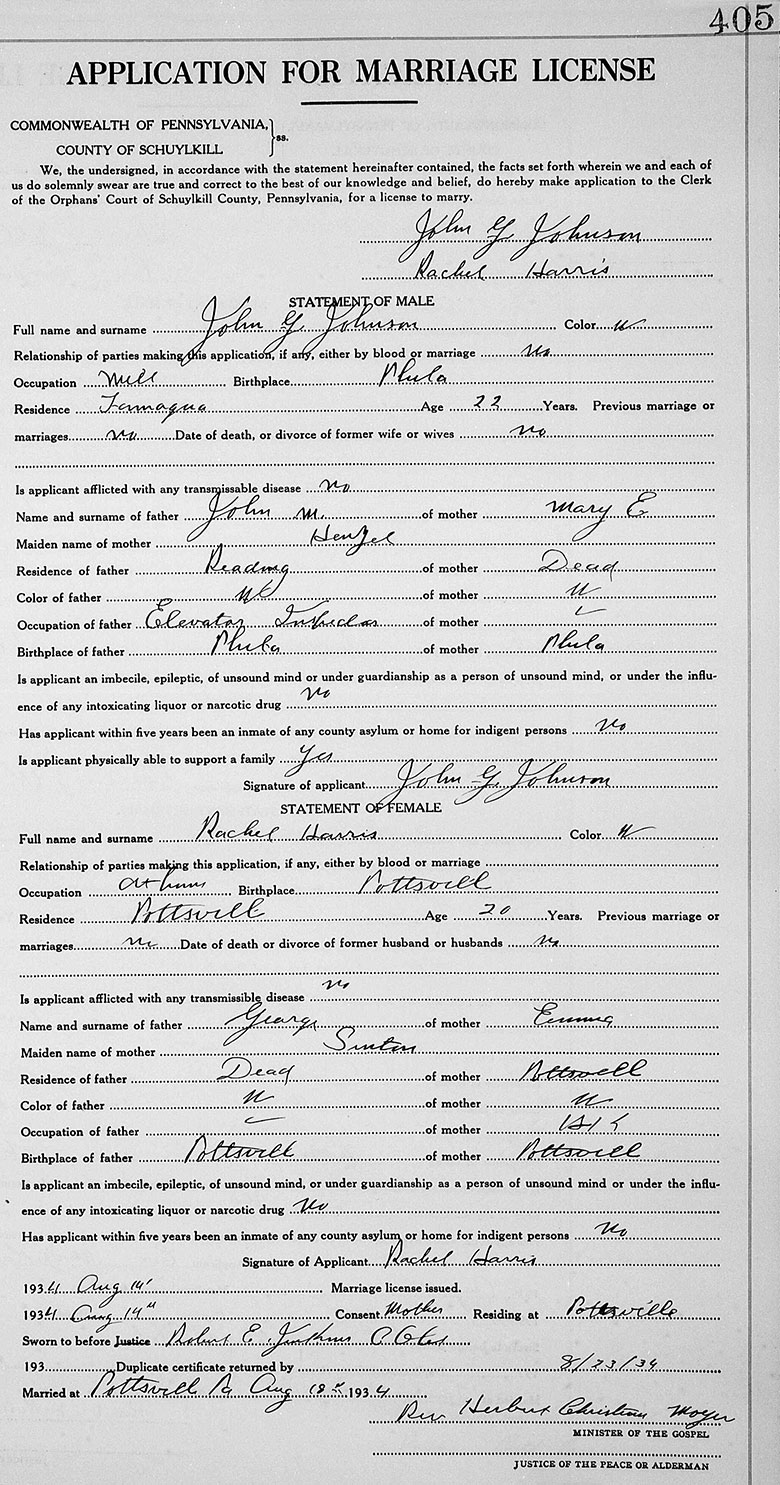 405
APPLICATION FOR MARRIAGE LICENSE
COMMONWEALTH OF PENNSYLVANIA,
COUNTY OF SCHUYLKILL } ss.
We, the undersigned, in accordance with the statement hereinafter contained, the facts set forth wherein we and each of
us do solemnly swear are true and correct to the best of our knowledge and belief, do hereby make application to the Clerk
of the Orphans' Court of Schuylkill County, Pennsylvania, for a license to marry.
John G Johnson
Rachel Harris
STATEMENT OF MALE
Full name and surname John G Johnson Color W
Relationship of parties making this application, if any, either by blood or marriage no
Occupation Mill Birthplace Phila
Residence Tamaqua Age 22 Years. Previous marriage or
marriages no Date of death, or divorce of former wife or wives no
Is applicant afflicted with any transmissable disease no
Name and surname of father John M. of mother Mary E
Maiden name of mother Henzel
Residence of father Reading of mother Dead
Color of father W of mother W
Occupation of father Elevator of mother
Birthplace of father Phila of mother Phila
Is applicant an imbecile, epileptic, of unsound mind or under guardianship as a person of unsound mind, or under the influ-
ence of any intoxicating liquor or narcotic drug no
Has applicant within five years been an inmate of any county asylum or home for indigent persons no
Is applicant physically able to support a family yes
Signature of applicant John G. Johnson
STATEMENT OF FEMALE
Full name and surname Rachel Harris Color W
Relationship of parties making this application, if any, either by blood or marriage
Occupation At home Birthplace Pottsvill
Residence Pottsvill Age 20 Years. Previous marriage or
marriages no Date of death or divorce of former husband or husbands no
Is applicant afflicted with any transmissible disease no
Name and surname of father George of mother Emma
Maiden name of mother
Residence of father Dead of mother Pottsvill
Color of father W of mother W
Occupation of father of mother
Birthplace of father Pottsvill of mother Pottsvill
Is applicant an imbecile, epileptic, of unsound mind, or under guardianship as a person of unsound mind or under the influ-
ence of any intoxicating liquor or narcotic drug No
Has applicant within five years been an inmate of any county asylum or home for indigent persons No
Signature of Applicant Rachel Harris
1934 Aug 14" Marriage license issued.
1934 Aug 14" Consent Mother Residing at Pottsville
Sworn to before Justice Robert E. Jenkins
193 Duplicate certificate returned by 8/23/34
Married at Pottsvill Pa Aug 18 1934
Rev Herbert Christian Moyer
MINISTER OF THE GOSPEL
JUSTICE OF THE PEACE OR ALDERMAN